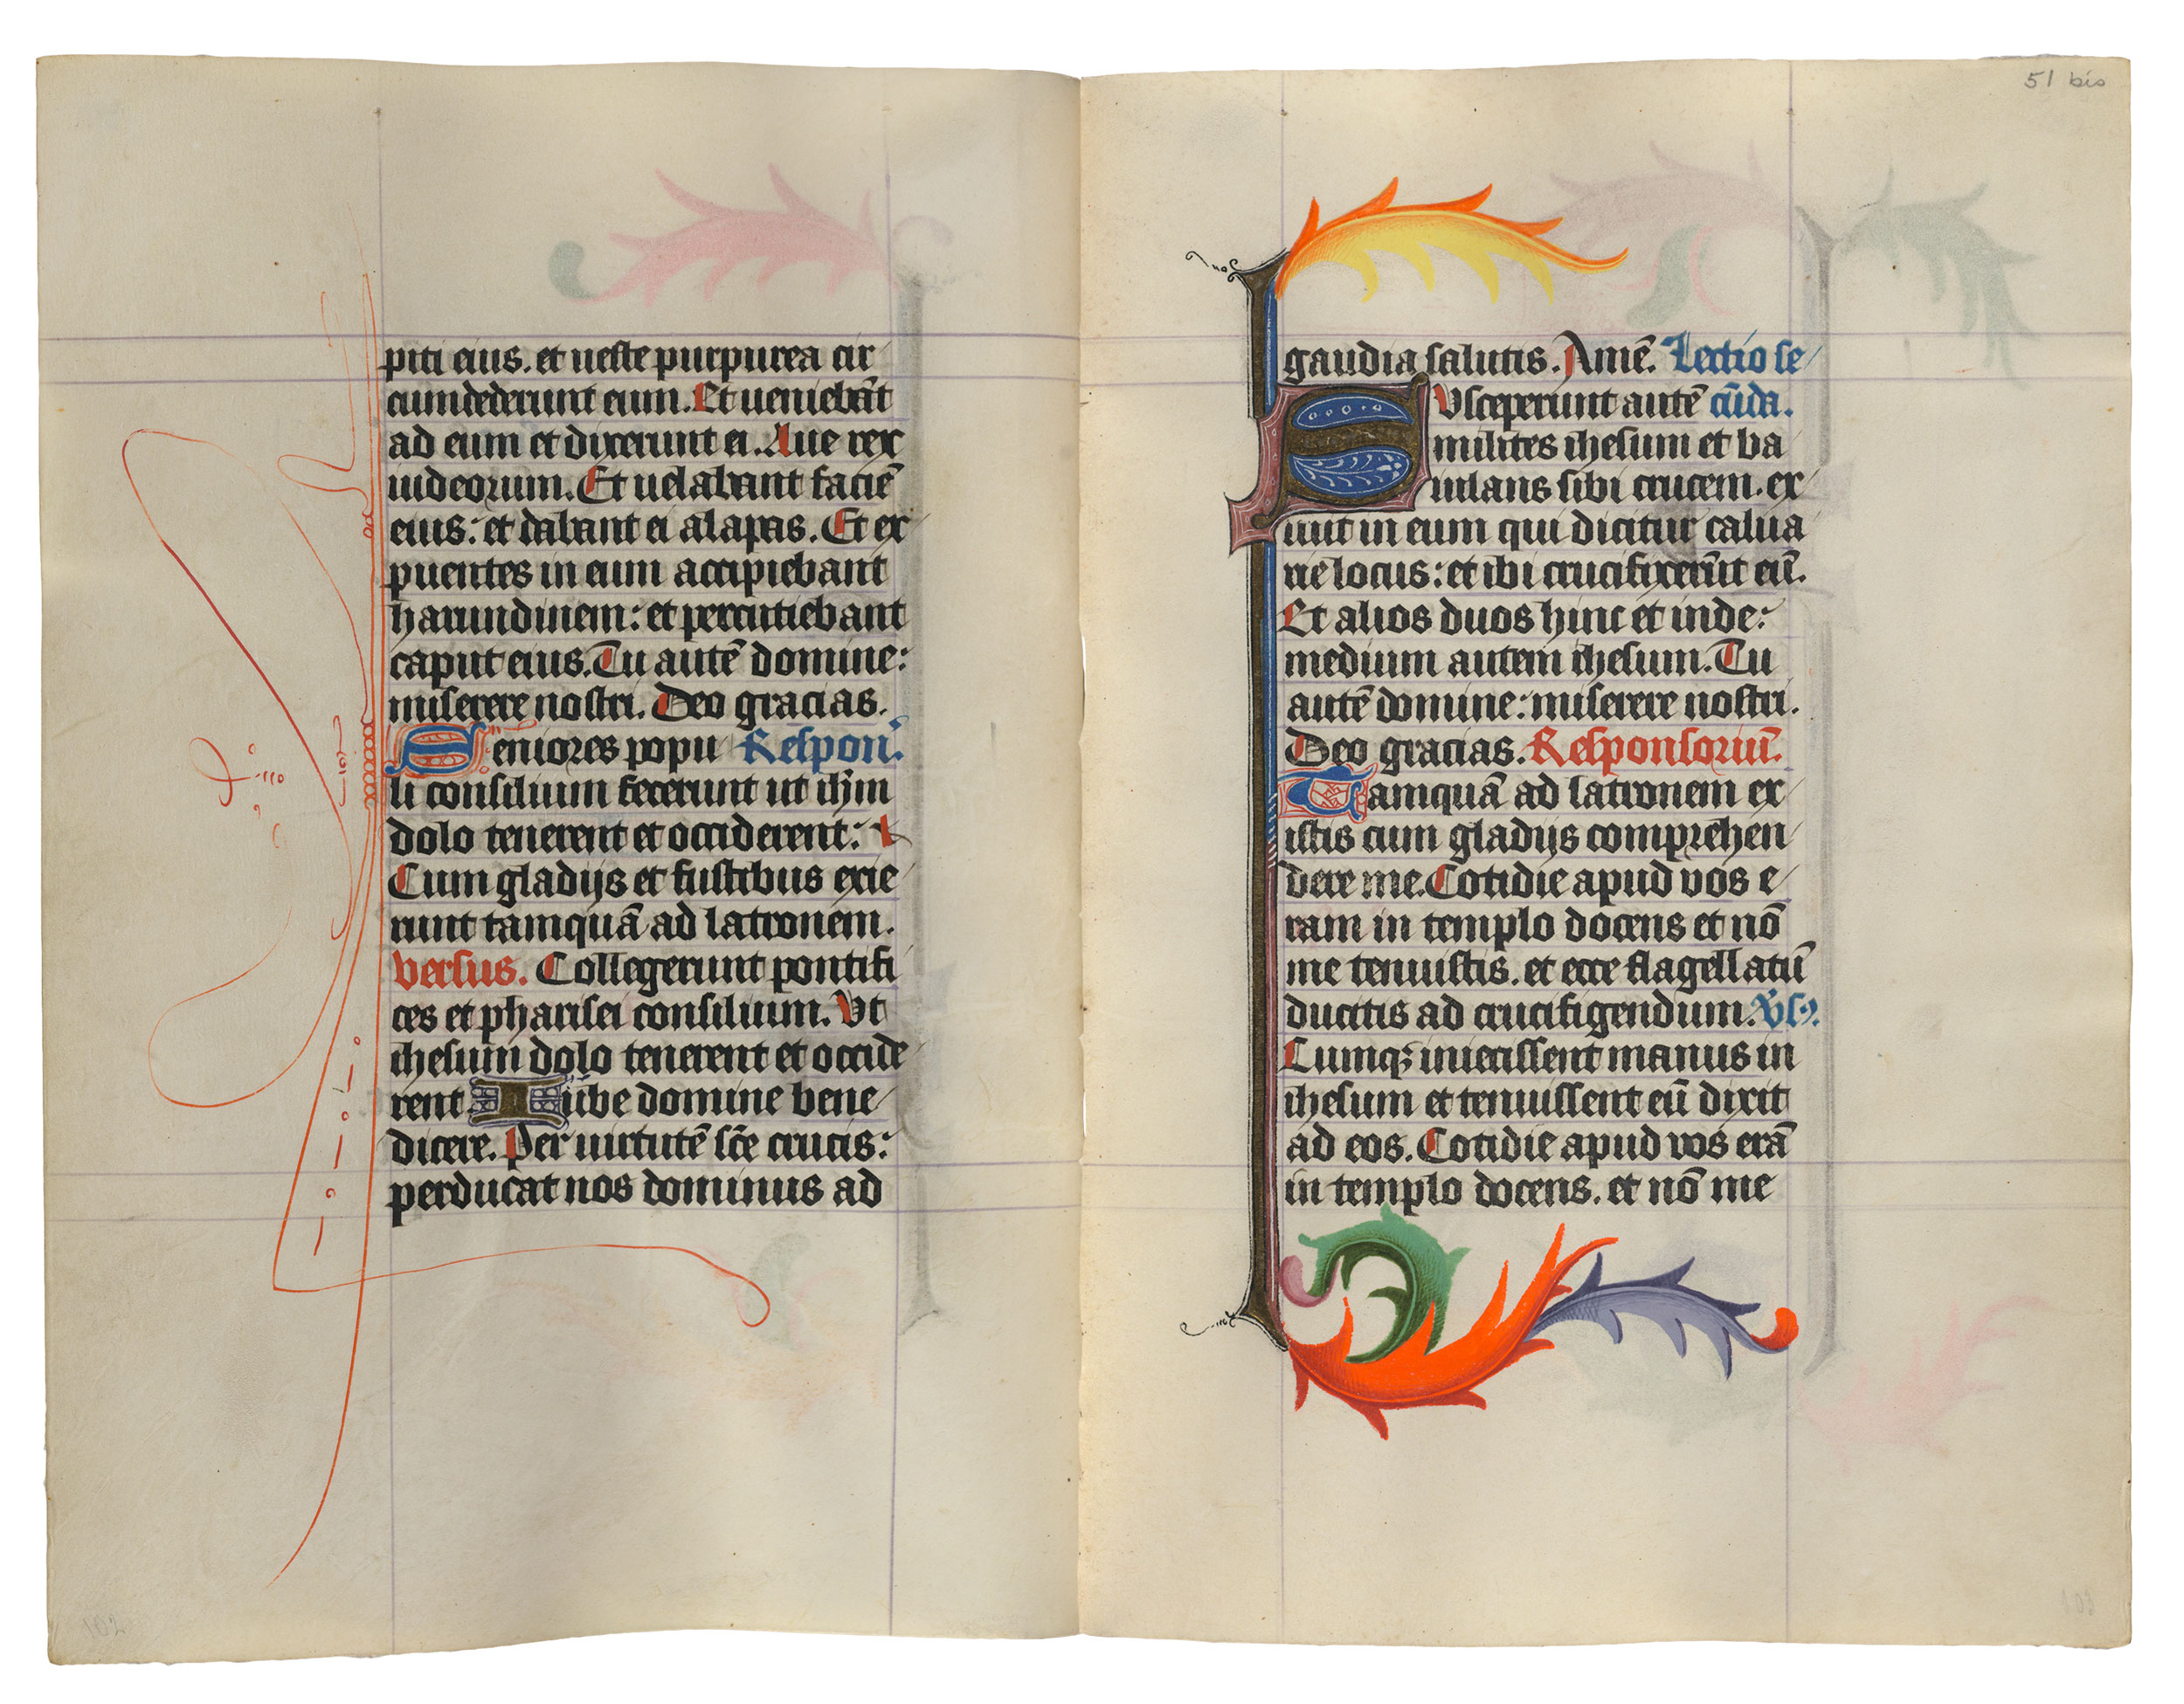 piti eius. et ueste purpurea cir
cumdederunt eum. Et ueniebāt
ad eum et dixerunt ei. Aue rex
iudeorum. Et uelabant faciē
eius: et dabant ei alapas. Et ex
puentes in eum accipiebant
harundinem: et percutiebant
caput eius. Tu autē domine:
miserere nostri. Deo gracias.
Seniores popu Respon.
li consilium fecerunt ut ih̄m
dolo tenerent et occiderent:
Cum gladijs et fustibus exie
runt tamquā ad latronem.
versus. Collegerunt pontifi
ces et pharisei consilium. Vt
ihesum dolo tenerent et occide
rent Iube domine bene
dicere. Per uirtutē sc̄e crucis:
perducat nos dominus ad
51 bis
gaudia salutis. Amē. Lectio se
Vsceperunt autē cūda.
milites ihesum et ba
iulans sibi crucem. ex
iuit in eum qui dicitur calua
rie locus: et ibi crucifixerūt eū.
Et alios duos hinc et inde:
medium autem ihesum. Tu
autē domine: miserere nostri.
Deo gracias. Responsoriū.
Tamquā ad latronem ex
istis cum gladijs comprehen
dere me. Cotidie apud vos e
ram in templo docens et nō
me tenuistis. et ecce flagellatū
ducitis ad crucifigendum. Vs9.
Cumqꝫ iniecissent manus in
ihesum et tenuissent eū dixit
ad eos. Cotidie apud vos erā
in templo docens. et nō me
102